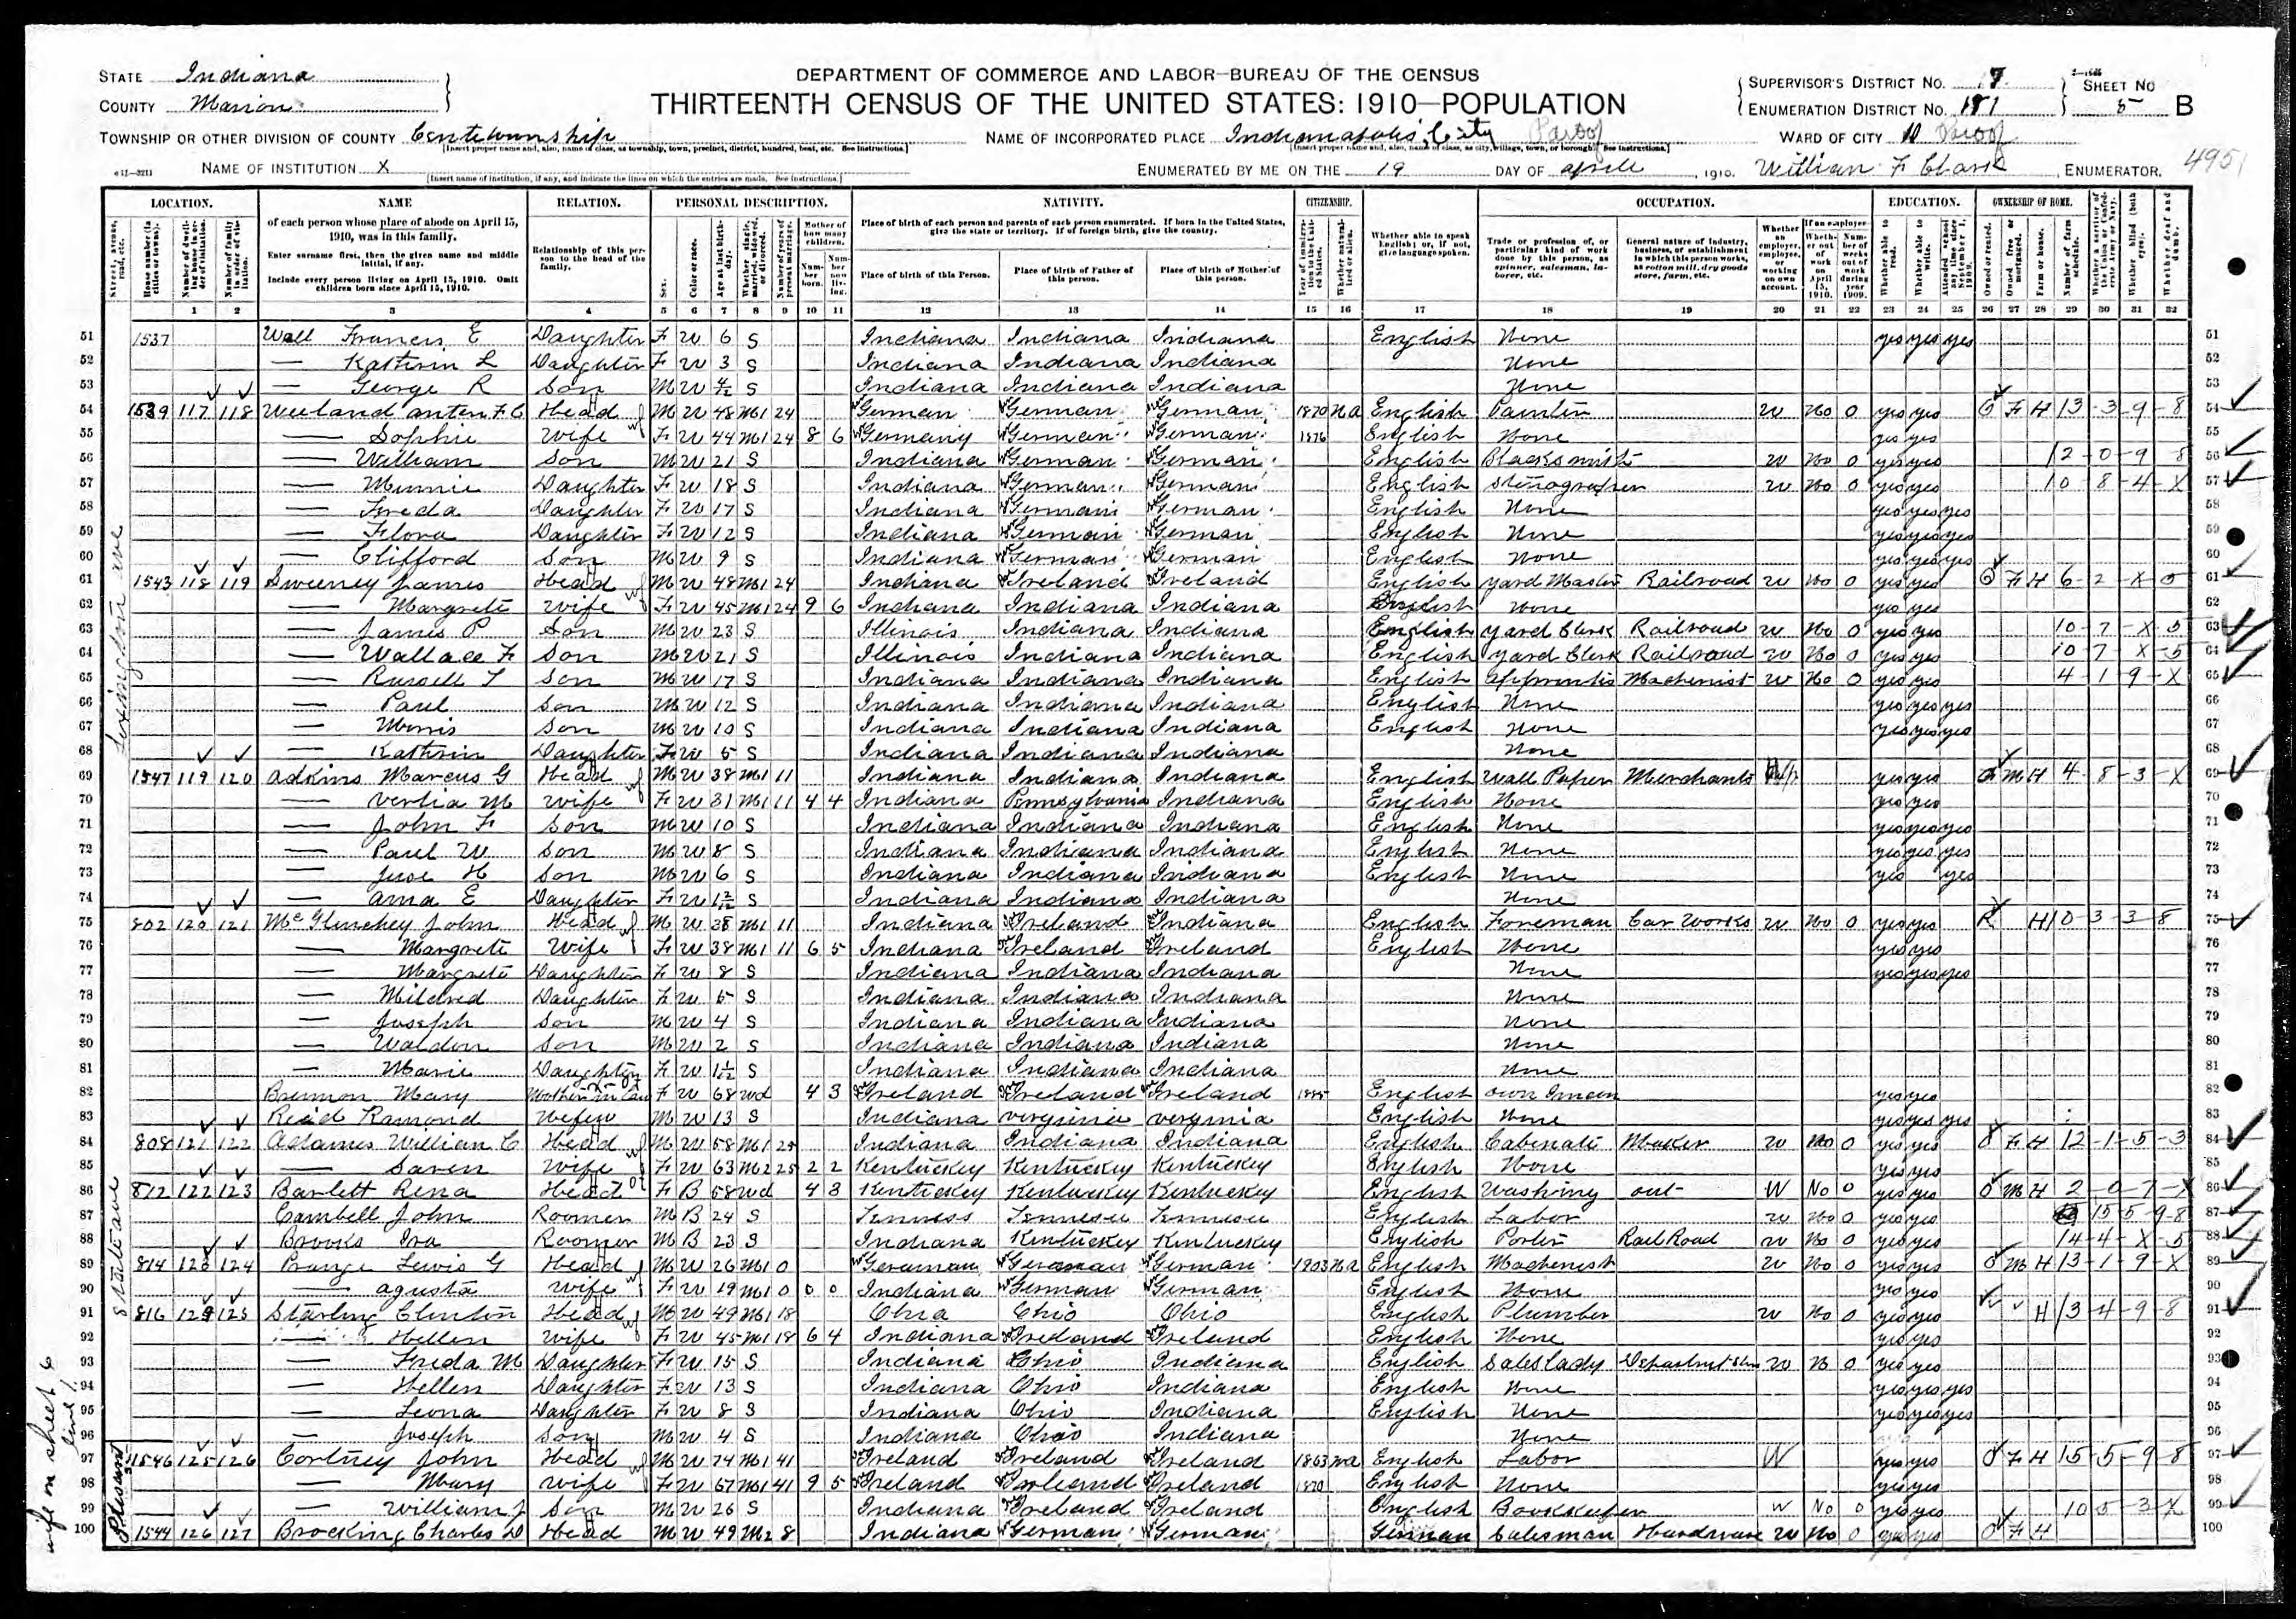 DEPARTMENT OF COMMERCE AND LABOR—BUREAU OF THE CENSUS
THIRTEENTH CENSUS OF THE UNITED STATES: 1910—POPULATION
STATE Indiana
COUNTY Marion
TOWNSHIP OR OTHER DIVISION OF COUNTY Centetownship
NAME OF INCORPORATED PLACE Indianapolis City Part of
NAME OF INSTITUTION X
ENUMERATED BY ME ON THE 19 DAY OF aprile, 1910. William F Clark, ENUMERATOR.
SUPERVISOR'S DISTRICT NO. 7 SHEET NO
ENUMERATION DISTRICT NO. 181 5 B
WARD OF CITY 10 Part of
4951
LOCATION. NAME RELATION. PERSONAL DESCRIPTION. NATIVITY. CITIZENSHIP. OCCUPATION. EDUCATION. OWNERSHIP OF HOME.
of each person whose place of abode on April 15, 1910, was in this family.
Enter surname first, then the given name and middle initial, if any.
Include every person living on April 15, 1910. Omit children born since April 15, 1910.
Relationship of this person to the head of the family.
Place of birth of each person and parents of each person enumerated. If born in the United States, give the state or territory. If of foreign birth, give the country.
Place of birth of this Person. Place of birth of Father of this person. Place of birth of Mother of this person.
Whether able to speak English; or, if not, give language spoken.
Lexington ave
51 1537 Wall Francis E Daughter F W 6 S Indiana Indiana Indiana English None yes yes yes 51
52 — Kathrin L Daughter F W 3 S Indiana Indiana Indiana None 52
53 — George R Son M W 4/12 S Indiana Indiana Indiana None 53
54 1539 117 118 Weiland anten F C Head M W 48 M1 24 German German German 1870 Na English Painter W No 0 yes yes O F H 13-3-9-8 54
55 — Sophie Wife F W 44 M1 24 8 6 Germany German German 1876 English None yes yes 55
56 — William Son M W 21 S Indiana German German English Blacksmith W No 0 yes yes 12-0-9-8 56
57 — Minnie Daughter F W 18 S Indiana German German English Stenographer W No 0 yes yes 10-8-4-X 57
58 — Freda Daughter F W 17 S Indiana German German English None yes yes yes 58
59 — Flora Daughter F W 12 S Indiana German German English None yes yes yes 59
60 — Clifford Son M W 9 S Indiana German German English None yes yes yes 60
61 1543 118 119 Sweeney James Head M W 48 M1 24 Indiana Ireland Ireland English Yard Master Railroad W No 0 yes yes O F H 6-2-X 0 61
62 — Margrete Wife F W 45 M1 24 9 6 Indiana Indiana Indiana English None yes yes 62
63 — James P Son M W 23 S Illinois Indiana Indiana English Yard Clerk Railroad W No 0 yes yes 10-7-X-5 63
64 — Wallace F Son M W 21 S Illinois Indiana Indiana English Yard Clerk Railroad W No 0 yes yes 10-7-X-5 64
65 — Russell T Son M W 17 S Indiana Indiana Indiana English apprentis Machenist W No 0 yes yes 4-1-9-X 65
66 — Paul Son M W 12 S Indiana Indiana Indiana English None yes yes yes 66
67 — Morris Son M W 10 S Indiana Indiana Indiana English None yes yes yes 67
68 — Kathrin Daughter F W 5 S Indiana Indiana Indiana None 68
69 1547 119 120 Adkins Marcus G Head M W 38 M1 11 Indiana Indiana Indiana English Wall Paper Merchants yes yes O M H 4-8-3-X 69
70 — Verlia M Wife F W 31 M1 11 4 4 Indiana Pennsylvania Indiana English None yes yes 70
71 — John F Son M W 10 S Indiana Indiana Indiana English None yes yes yes 71
72 — Paul W Son M W 8 S Indiana Indiana Indiana English None yes yes yes 72
73 — Jese H Son M W 6 S Indiana Indiana Indiana English None yes yes 73
74 — Arna E Daughter F W S Indiana Indiana Indiana None 74
State ave
75 802 120 121 McGlinchey John Head M W 38 M1 11 Indiana Ireland Indiana English Foreman Car Works W No 0 yes yes R H 10-3-3-8 75
76 — Margrete Wife F W 38 M1 11 6 5 Indiana Ireland Ireland English None yes yes 76
77 — Margrete Daughter F W 8 S Indiana Indiana Indiana None yes yes yes 77
78 — Mildred Daughter F W 5 S Indiana Indiana Indiana None 78
79 — Joseph Son M W 4 S Indiana Indiana Indiana None 79
80 — Waldon Son M W 2 S Indiana Indiana Indiana None 80
81 — Marie Daughter F W S Indiana Indiana Indiana None 81
82 Brennon Mary Mother in Law F W 68 wd 4 3 Ireland Ireland Ireland 1885 English own Incom yes yes 82
83 Reid Ramond M W 13 S Indiana Verginia Verginia English None yes yes yes 83
84 808 121 122 Adams William C Head M W 58 M1 25 Indiana Indiana Indiana English Cabenate Maker W No 0 yes yes O F H 12-1-5-3 84
85 — Saren Wife F W 63 M2 25 2 2 Kentuckey Kentuckey Kentuckey English None yes yes 85
86 812 122 123 Barlett Rena Head F B 58 wd 4 3 Kentuckey Kentuckey Kentuckey English Washing out W No 0 yes yes O M H 2-0-7-X 86
87 Cambell John Roomer M B 24 S Tenness Tennesee Tennesee English Labor W No 0 yes yes 15 5 9-8 87
88 Brooks Ira Roomer M B 23 S Indiana Kentuckey Kentuckey English Porter Rail Road W No 0 yes yes 14-4-X-5 88
89 814 123 124 Prange Lewis G Head M W 26 M1 0 German German German 1903 Na English Machenist W No 0 yes yes O M H 13-1-9-X 89
90 — agusta Wife F W 19 M1 0 0 0 Indiana German German English None yes yes 90
91 816 124 125 Starling Clinton Head M W 49 M1 18 Ohio Ohio Ohio English Plumber W No 0 yes yes H 13-4-9-8 91
92 — Hellen Wife F W 45 M1 18 6 4 Indiana Ireland Ireland English None yes yes 92
93 — Freda M Daughter F W 15 S Indiana Ohio Indiana English Saleslady Department Store W No 0 yes yes 93
94 — Hellen Daughter F W 13 S Indiana Ohio Indiana English None yes yes yes 94
95 — Leona Daughter F W 8 S Indiana Ohio Indiana English None yes yes yes 95
96 — Joseph Son M W 4 S Indiana Ohio Indiana None 96
Plesant
97 1546 125 126 Cortney John Head M W 74 M1 41 Ireland Ireland Ireland 1863 na English Labor W yes yes O F H 15-5-9-8 97
98 — Mary Wife F W 67 M1 41 9 5 Ireland Ireland Ireland 1870 English None yes yes 98
99 — William J Son M W 26 S Indiana Ireland Ireland English Bookkeeper W No 0 yes yes 10 5-3 X 99
100 1544 126 127 Brocking Charles W Head M W 49 M2 8 Indiana German German German Salesman Hardware W No 0 yes yes O F H 100
wife on sheet 6
line 1